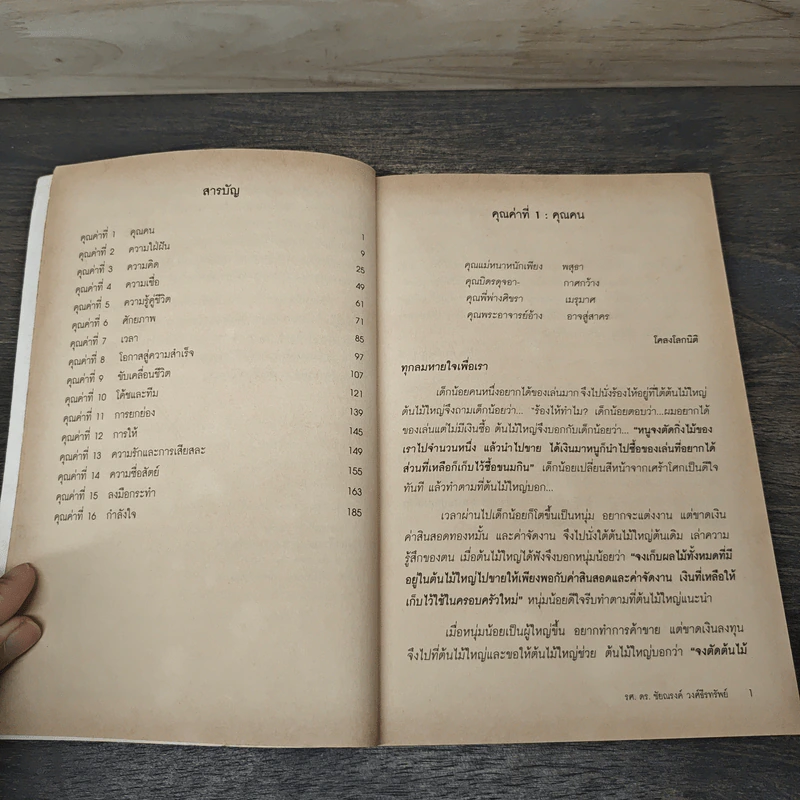 สารบัญ
คุณค่าที่ 1 คุณคน 1
คุณค่าที่ 2 ความใฝ่ฝัน 9
คุณค่าที่ 3 ความคิด 25
คุณค่าที่ 4 ความเชื่อ 49
คุณค่าที่ 5 ความรู้คู่ชีวิต 61
คุณค่าที่ 6 ศักยภาพ 71
คุณค่าที่ 7 เวลา 85
คุณค่าที่ 8 โอกาสสู่ความสำเร็จ 97
คุณค่าที่ 9 ขับเคลื่อนชีวิต 107
คุณค่าที่ 10 โค้ชและทีม 121
คุณค่าที่ 11 การยกย่อง 139
คุณค่าที่ 12 การให้ 145
คุณค่าที่ 13 ความรักและการเสียสละ 149
คุณค่าที่ 14 ความซื่อสัตย์ 155
คุณค่าที่ 15 ลงมือกระทำ 163
คุณค่าที่ 16 กำลังใจ 185
คุณค่าที่ 1 : คุณคน
คุณแม่หนาหนักเพียง พสุธา
คุณบิดรดุจอา- กาศกว้าง
คุณพี่พ่างศิขรา เมรุมาศ
คุณพระอาจารย์อ้าง อาจสู่สาคร
โคลงโลกนิติ
ทุกลมหายใจเพื่อเรา
เด็กน้อยคนหนึ่งอยากได้ของเล่นมาก จึงไปนั่งร้องไห้อยู่ที่ใต้ต้นไม้ใหญ่
ต้นไม้ใหญ่จึงถามเด็กน้อยว่า... "ร้องไห้ทำไม? เด็กน้อยตอบว่า...ผมอยากได้
ของเล่นแต่ไม่มีเงินซื้อ ต้นไม้ใหญ่จึงบอกกับเด็กน้อยว่า... "หนูจงตัดกิ่งไม้ของ
เราไปจำนวนหนึ่ง แล้วนำไปขาย ได้เงินมาหนูก็นำไปซื้อของเล่นที่อยากได้
ส่วนที่เหลือก็เก็บไว้ซื้อขนมกิน" เด็กน้อยเปลี่ยนสีหน้าจากเศร้าโศกเป็นดีใจ
ทันที แล้วทำตามที่ต้นไม้ใหญ่บอก...
เวลาผ่านไปเด็กน้อยก็โตขึ้นเป็นหนุ่ม อยากจะแต่งงาน แต่ขาดเงิน
ค่าสินสอดทองหมั้น และค่าจัดงาน จึงไปนั่งใต้ต้นไม้ใหญ่ต้นเดิม เล่าความ
รู้สึกของตน เมื่อต้นไม้ใหญ่ได้ฟังจึงบอกหนุ่มน้อยว่า "จงเก็บผลไม้ทั้งหมดที่มี
อยู่ในต้นไม้ใหญ่ไปขายให้เพียงพอกับค่าสินสอดและค่าจัดงาน เงินที่เหลือให้
เก็บไว้ใช้ในครอบครัวใหม่" หนุ่มน้อยดีใจรีบทำตามที่ต้นไม้ใหญ่แนะนำ
เมื่อหนุ่มน้อยเป็นผู้ใหญ่ขึ้น อยากทำการค้าขาย แต่ขาดเงินลงทุน
จึงไปที่ต้นไม้ใหญ่และขอให้ต้นไม้ใหญ่ช่วย ต้นไม้ใหญ่บอกว่า "จงตัดต้นไม้
รศ. ดร. ชัยณรงค์ วงศ์ธีรทรัพย์ 1